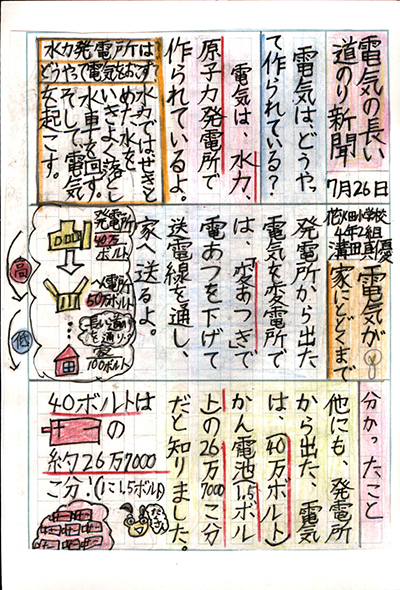 電気の長い
道のり新聞
7月26日
4年2組
電気はどうやっ
て作られている?
電気は、水力、
原子力発電所で
作られているよ。
水力発電所は
どうやって電気をおこす
水力ではせきと
めた水を
いきよく落とし
水車を回す。
そして、電気
を起こす。
電気が
家にとどくまで
発電所から出た
電気を変電所で
は、「変あつき」で
電あつを下げて
送電線を通し、
家へ送るよ。
発電所
40万
ボルト
50万ボルト
100ボルト
高
低
分かったこと
他にも、発電所
から出た、電気
は、(40万ボルト)
かん電池1.5ボル
トの26万7000こ分
だと知りました。
40ボルトは
の
約26万7000
こ分!